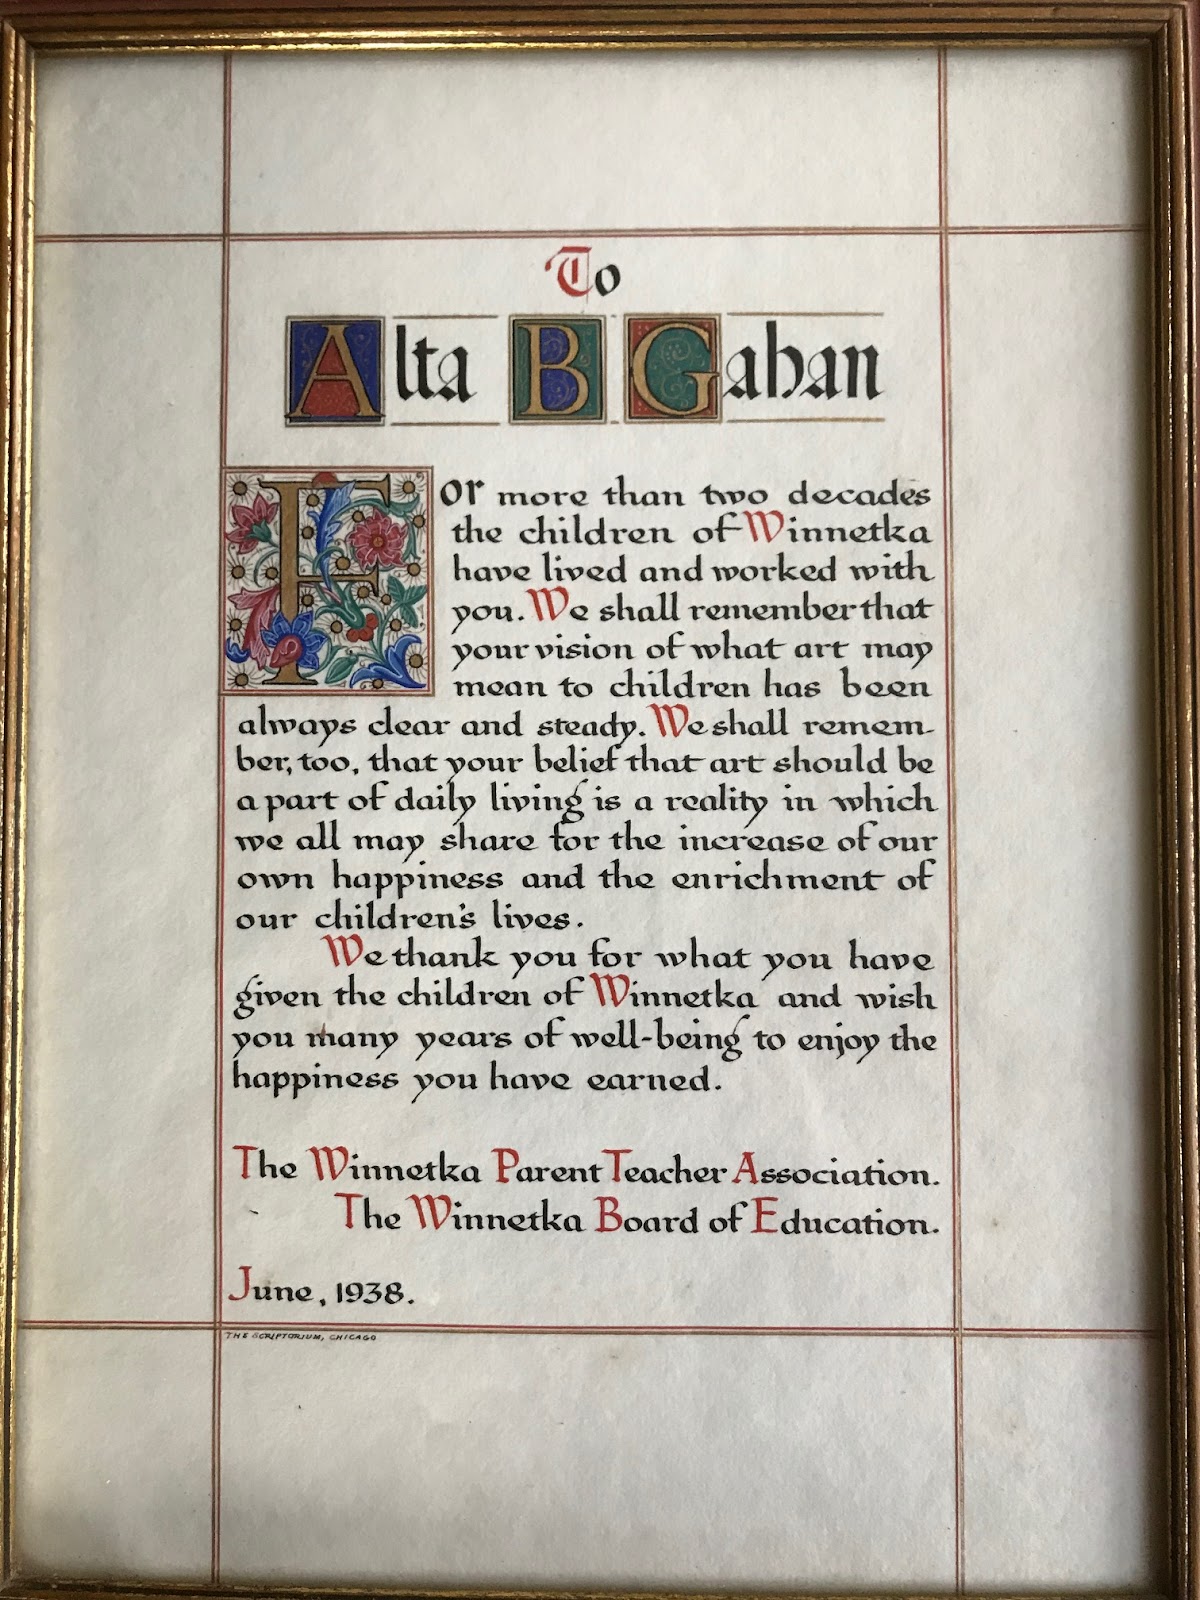 To
Alta B Gahan
For more than two decades
the children of Winnetka
have lived and worked with
you. We shall remember that
your vision of what art may
mean to children has been
always clear and steady. We shall remem-
ber, too, that your belief that art should be
a part of daily living is a reality in which
we all may share for the increase of our
own happiness and the enrichment of
our children's lives.
We thank you for what you have
given the children of Winnetka and wish
you many years of well-being to enjoy the
happiness you have earned.
The Winnetka Parent Teacher Association.
The Winnetka Board of Education.
June, 1938.
THE SCRIPTORIUM, CHICAGO